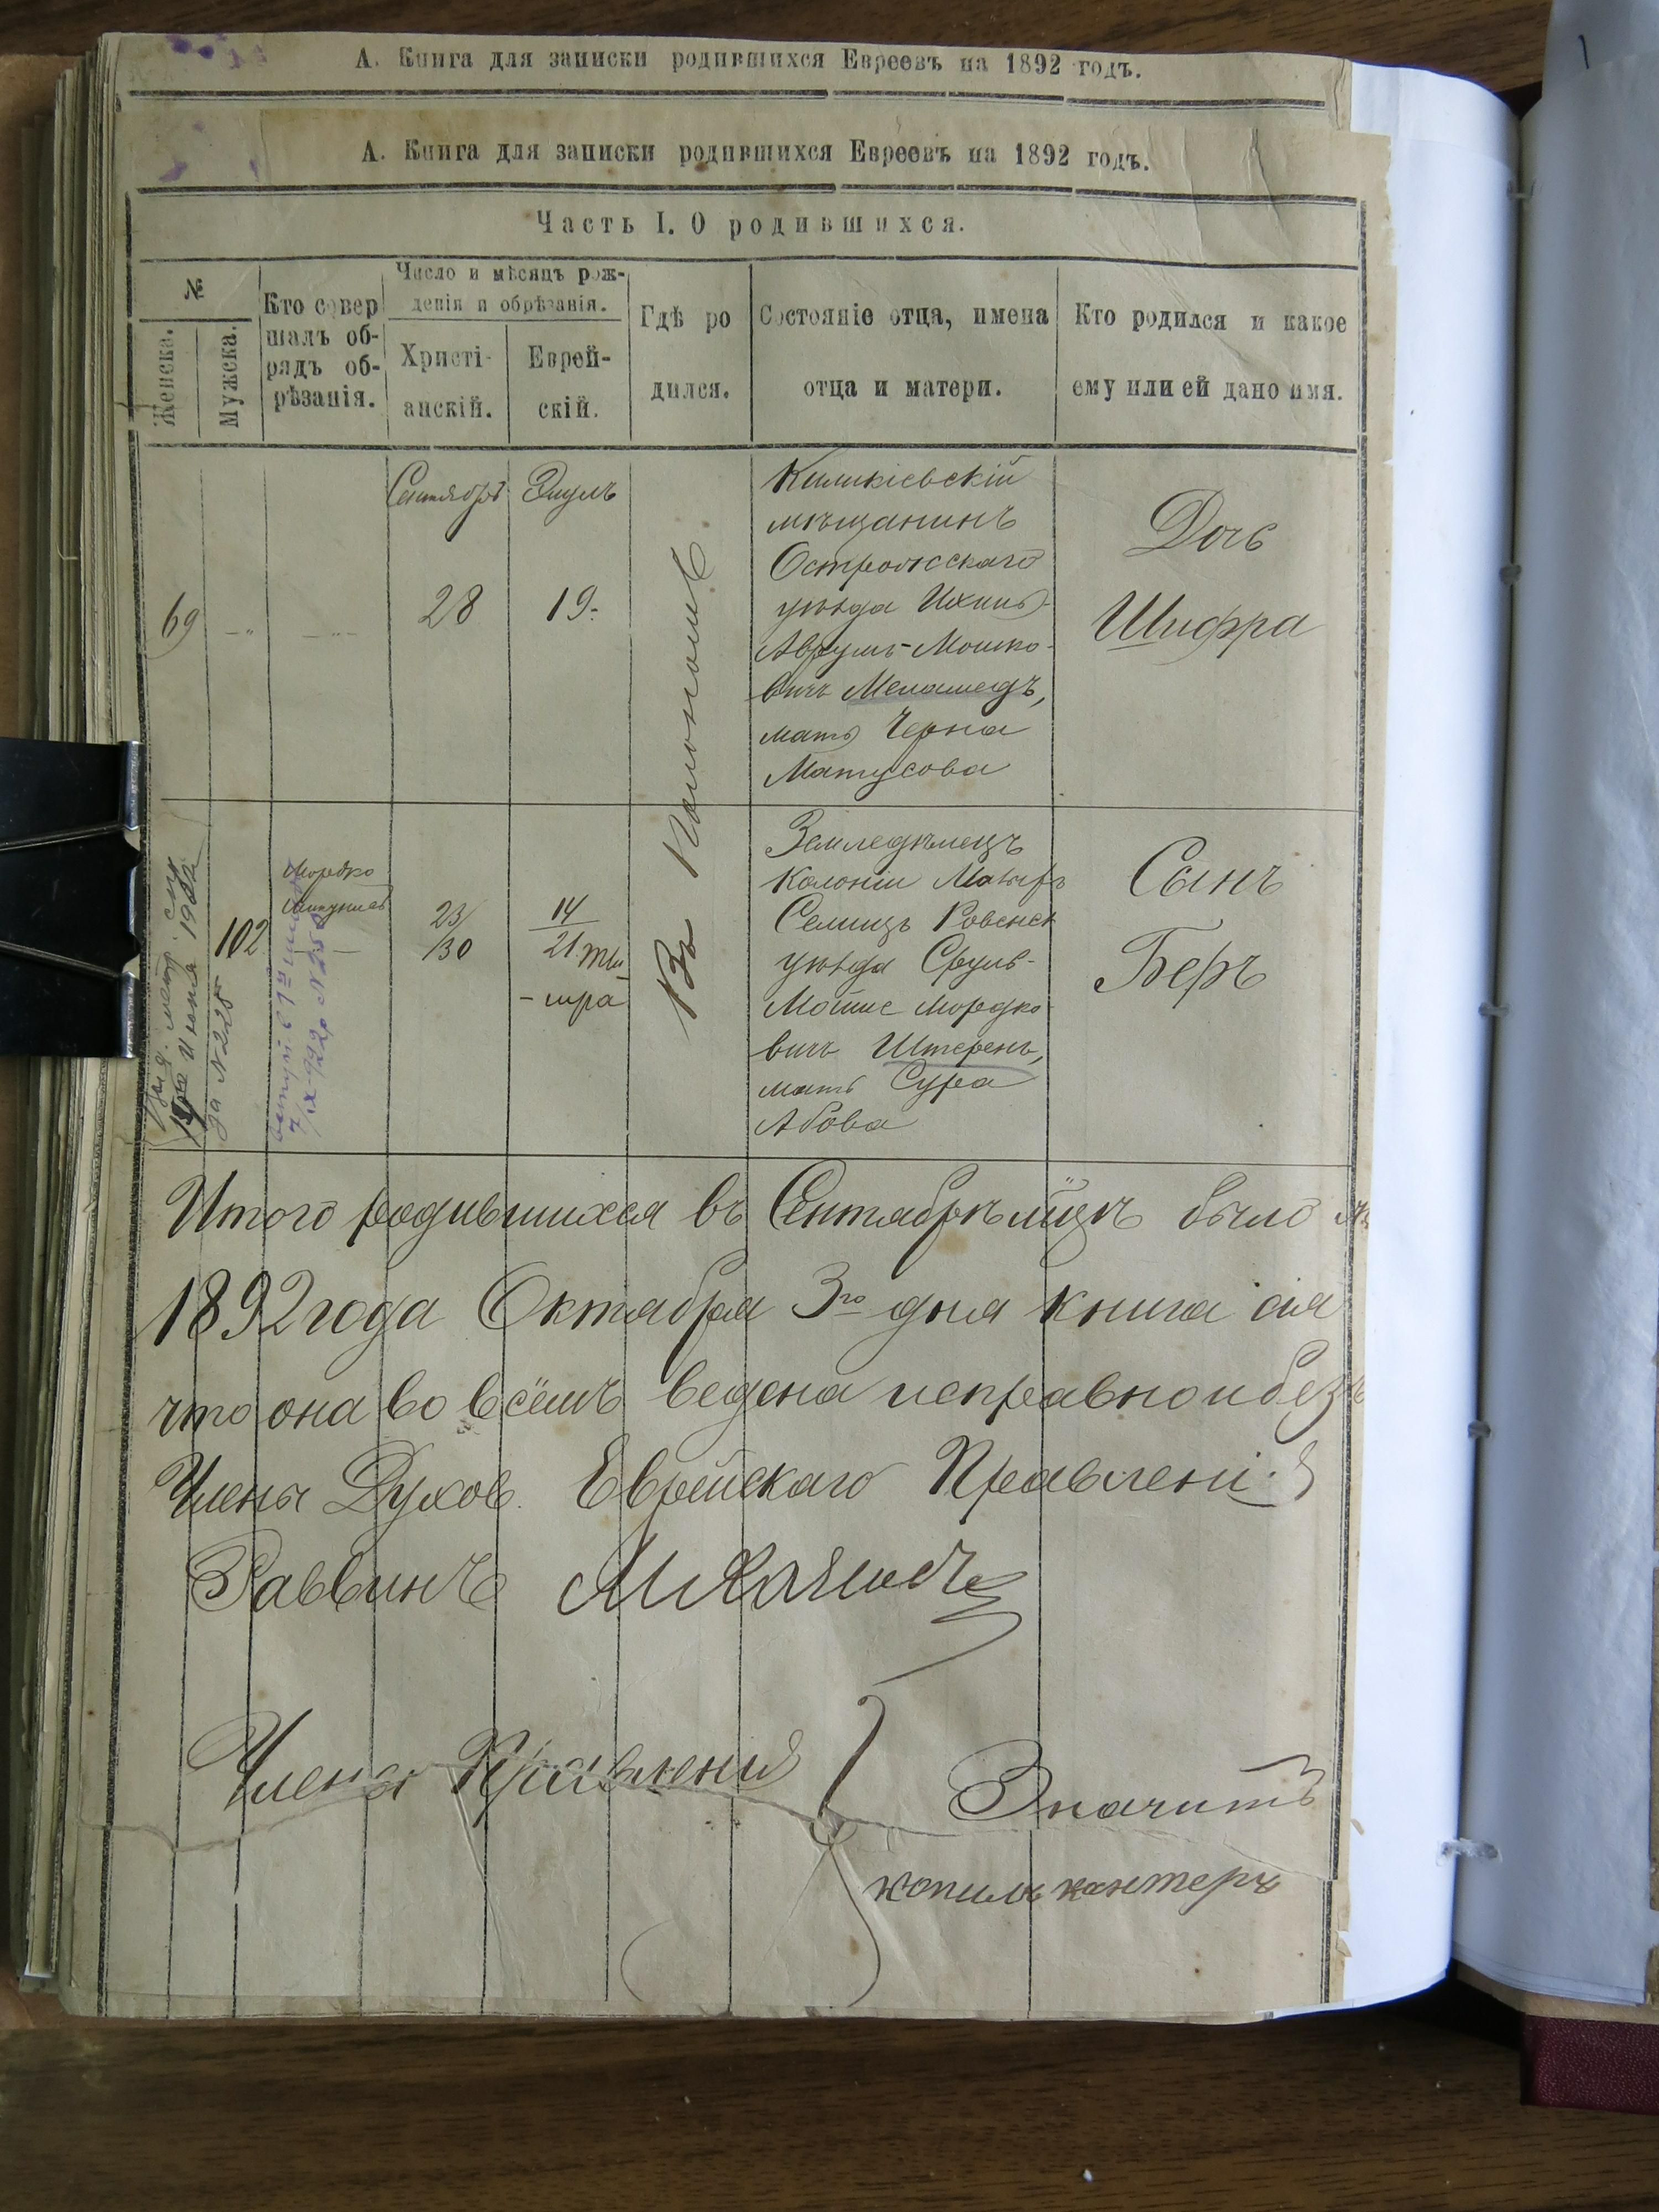 А. Книга для записки родившихся Евреевъ на 1892 годъ.
А. Книга для записки родившихся Евреевъ на 1892 годъ.
Часть I. О родившихся.
№
Женска.
Мужска.
Кто совер
шалъ об-
рядъ об-
рѣзанія.
Число и мѣсяцъ рож-
денія и обрѣзанія.
Христі-
анскій.
Еврей-
скій.
Гдѣ ро
дился.
Состояніе отца, имена
отца и матери.
Кто родился и какое
ему или ей дано имя.
69
Сентябрь
28
Элулъ
19.
мѣщанинъ
Острожскаго
уѣзда
Аврумъ-Мошко-
вичъ Меламедъ,
мать Черна
Матусова
Дочь
Шифра
102
Мордко
23/
/30
14
21 Ти-
-шра
Въ
Земледѣлецъ
Колоніи
Селищъ Ровенск
уѣзда Сруль-
Мойше Мордко-
вичъ Штеренъ,
мать Сура
Абова
Сынъ
Беръ
за № 228
Итого родившихся въ Сентябрѣ мцѣ было
1892 года Октября 3го дня книга сія
что она во всёмъ ведена исправно и без
Члены Духов. Еврейскаго Правлені
Раввинъ
Члены Правленія
Значитъ
копилъ кантеръ